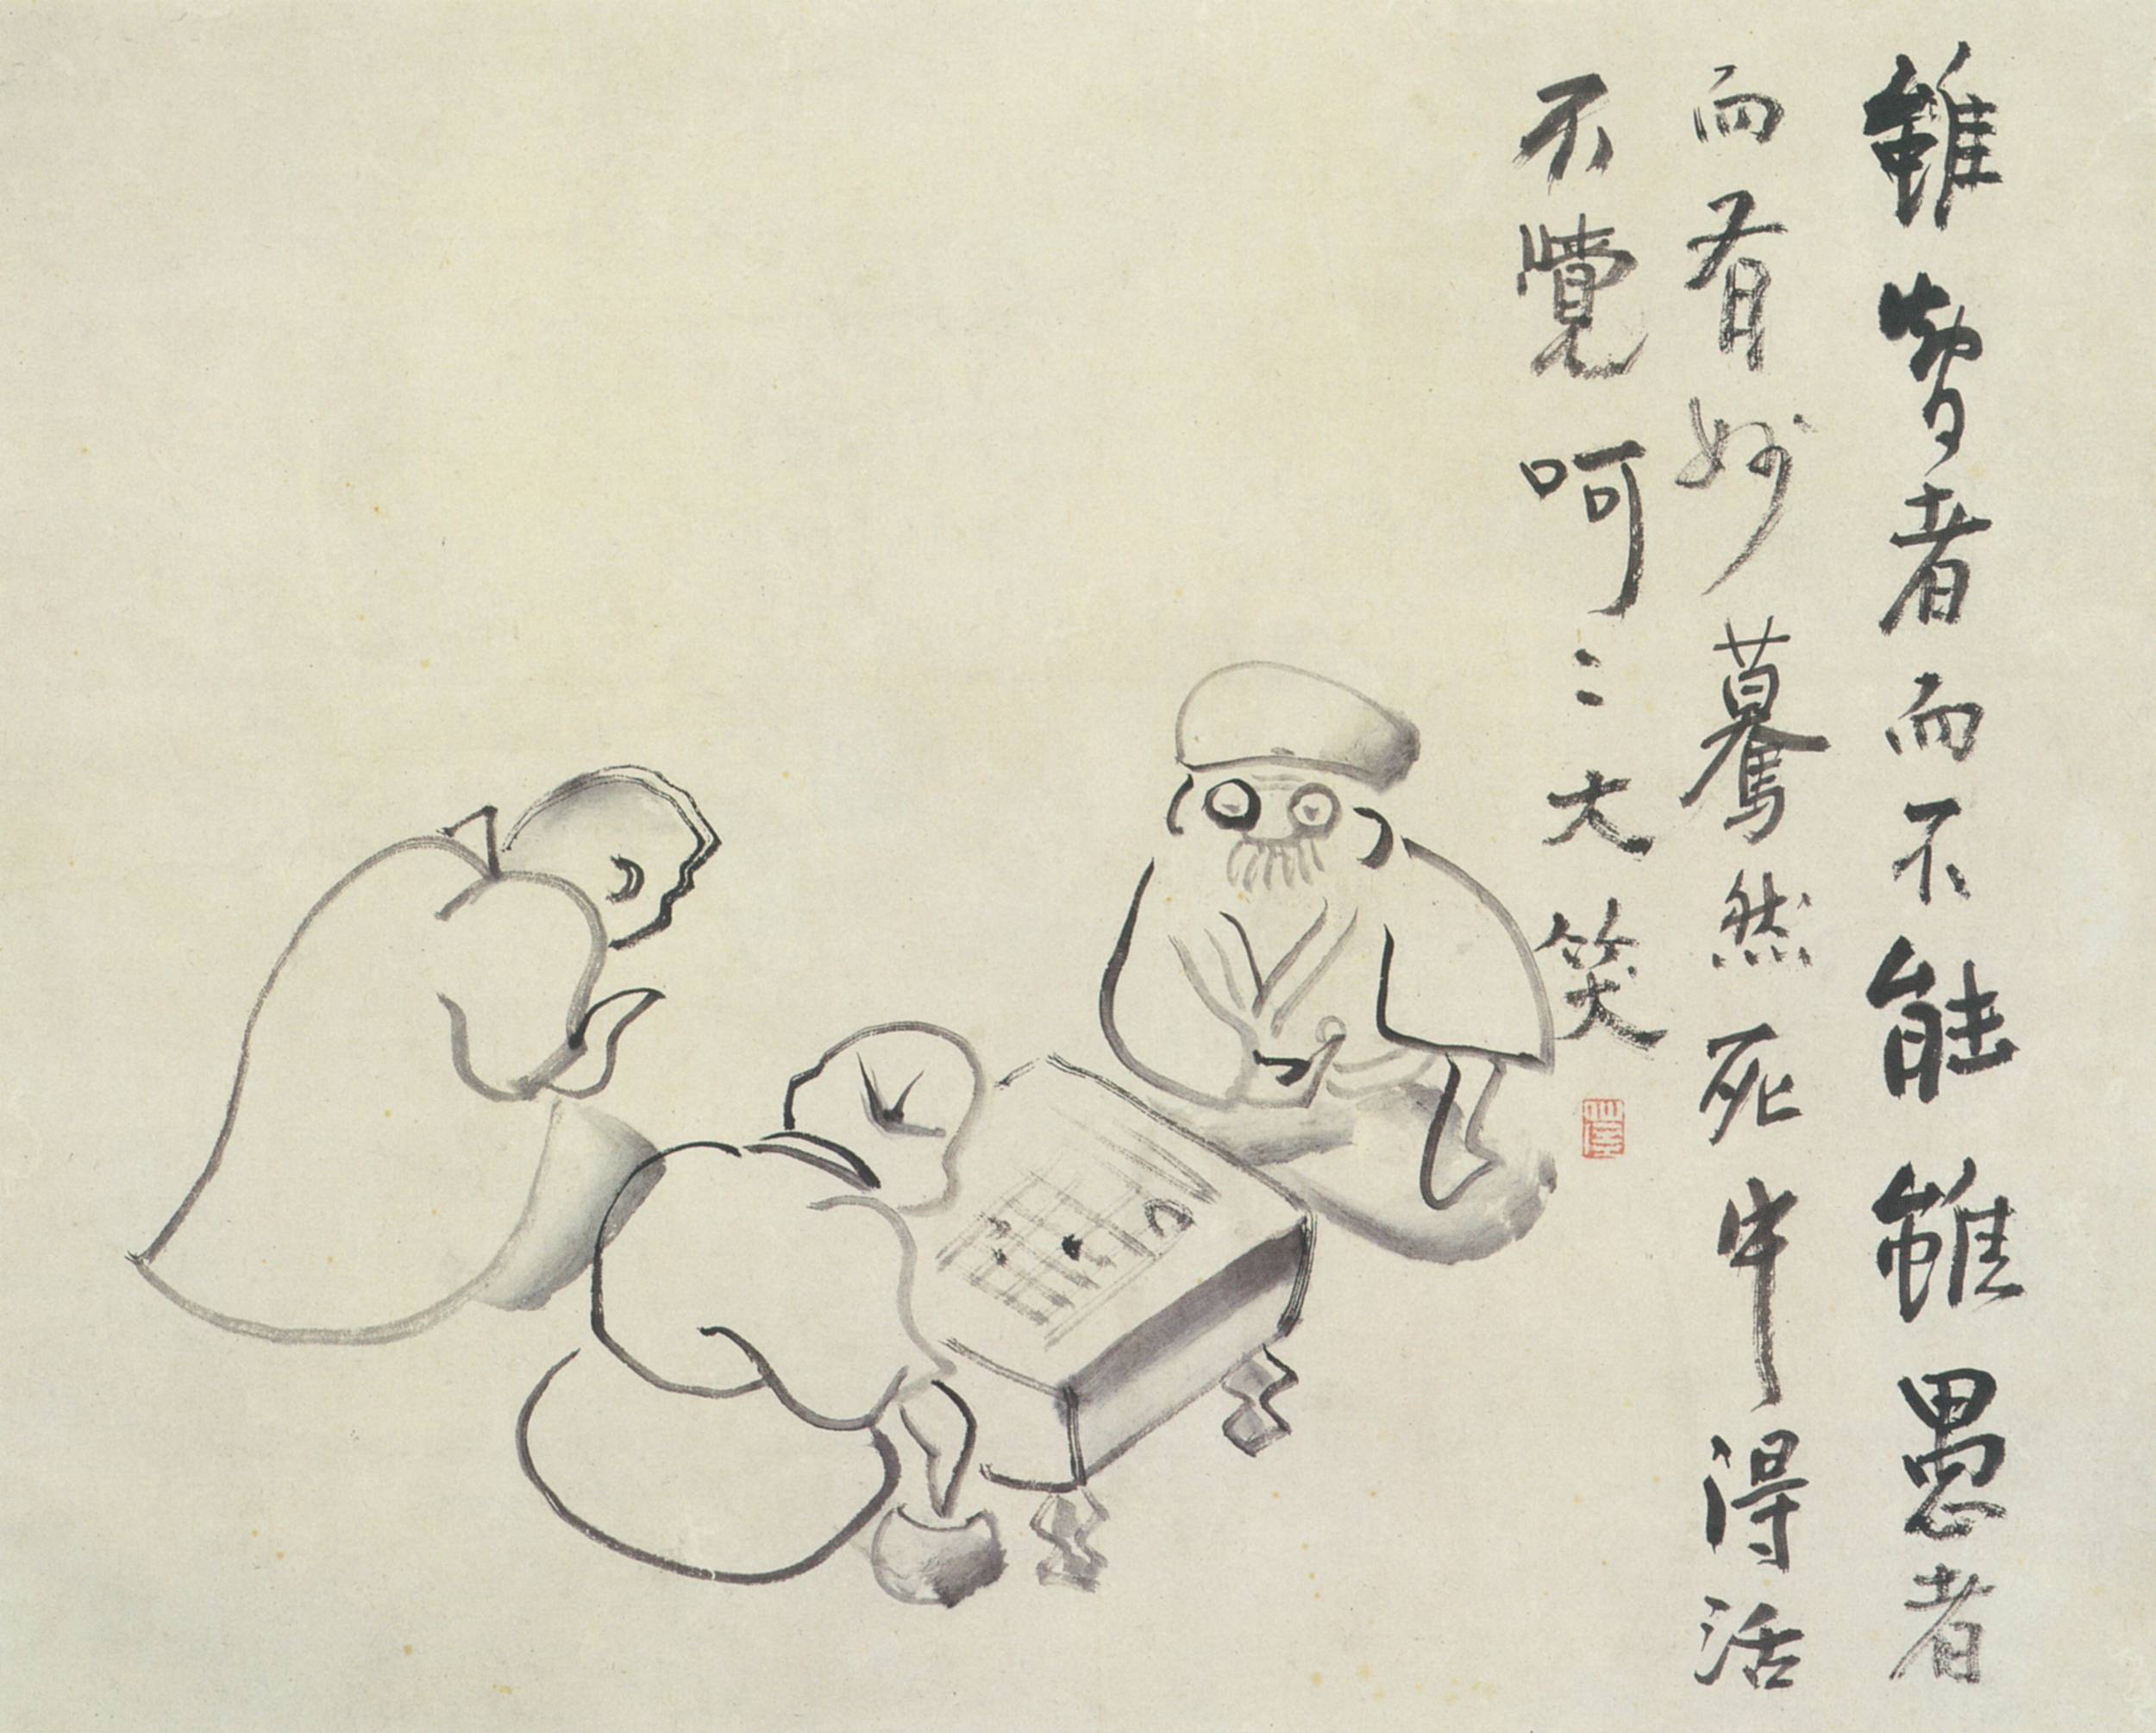 雖智者而不能雖愚者
而有妙驀然死中得活
不覺呵〻大笑